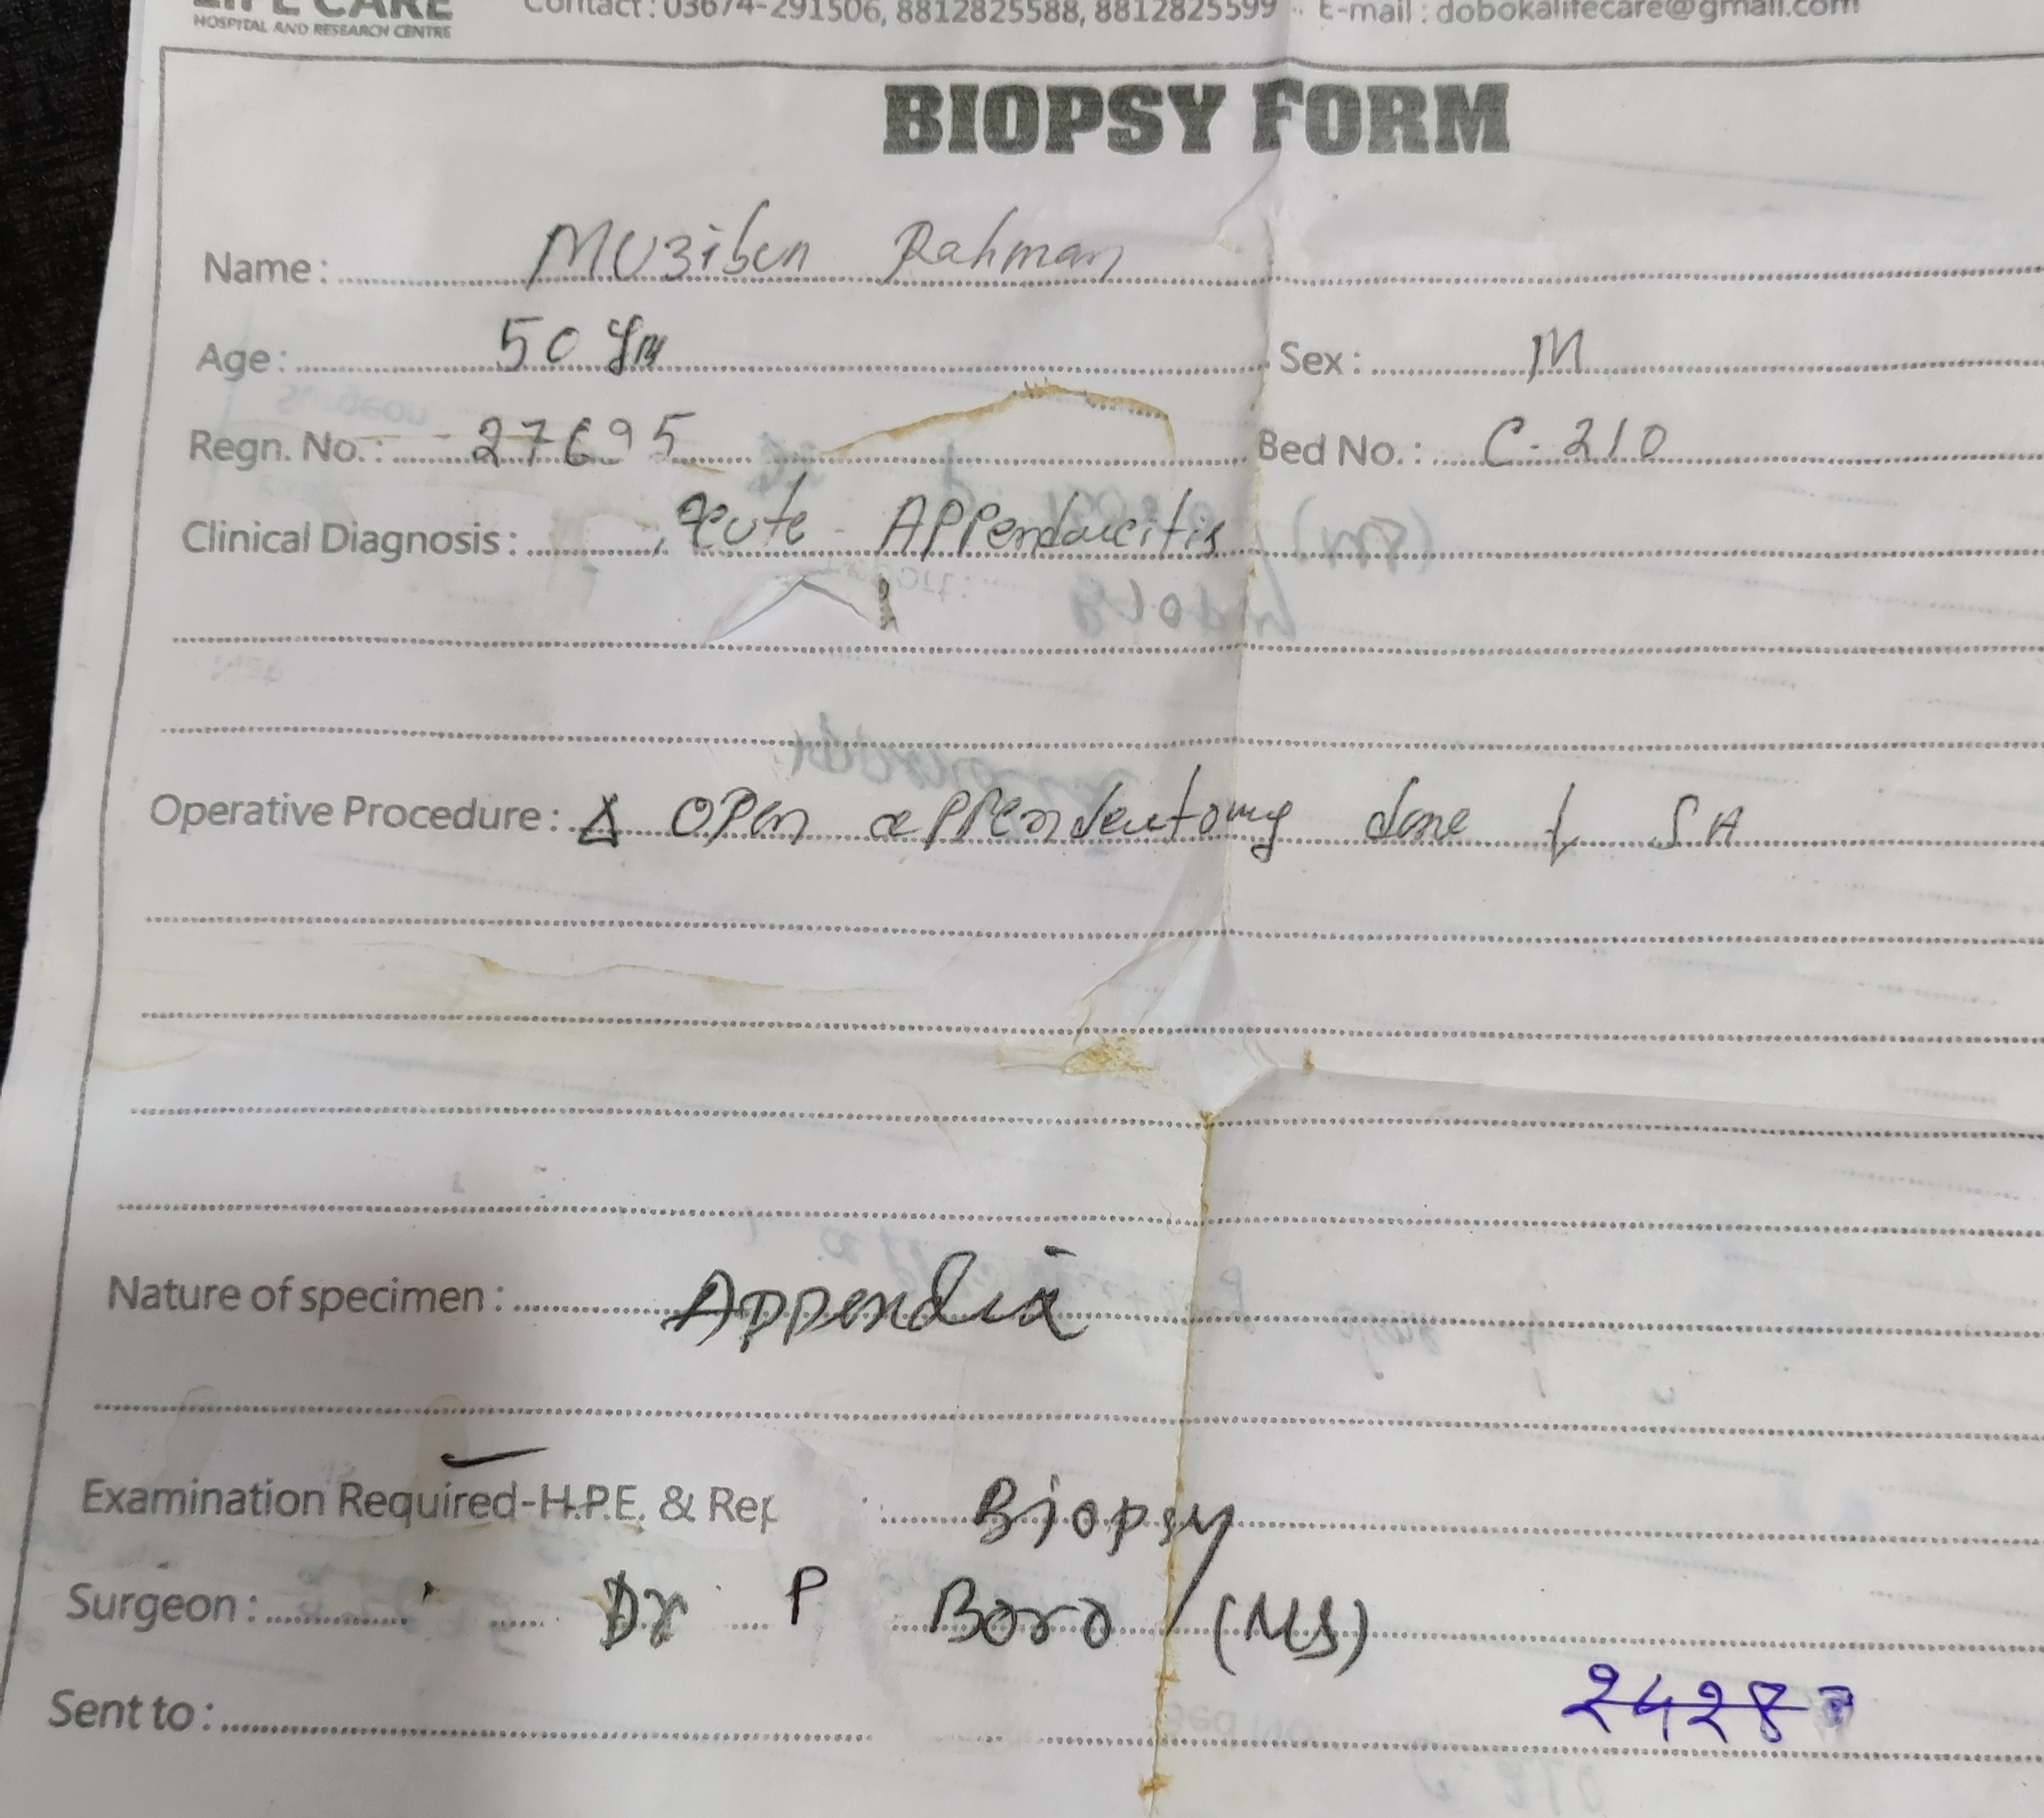 LIFE CARE
HOSPITAL AND RESEARCH CENTRE
Contact : 03674-291506, 8812825588, 8812825599 E-mail : dobokalifecare@gmail.com
BIOPSY FORM
Name : MUZibun Rahman
Age : 50 Yrs Sex : M
Regn. No. : 27695 Bed No. : C-210
Clinical Diagnosis : Acute Appendicitis
Operative Procedure : Δ Open appendectomy done SA
Nature of specimen : Appendix
Examination Required-H.P.E. & Biopsy
Surgeon : Dr P Boro (MS)
Sent to :